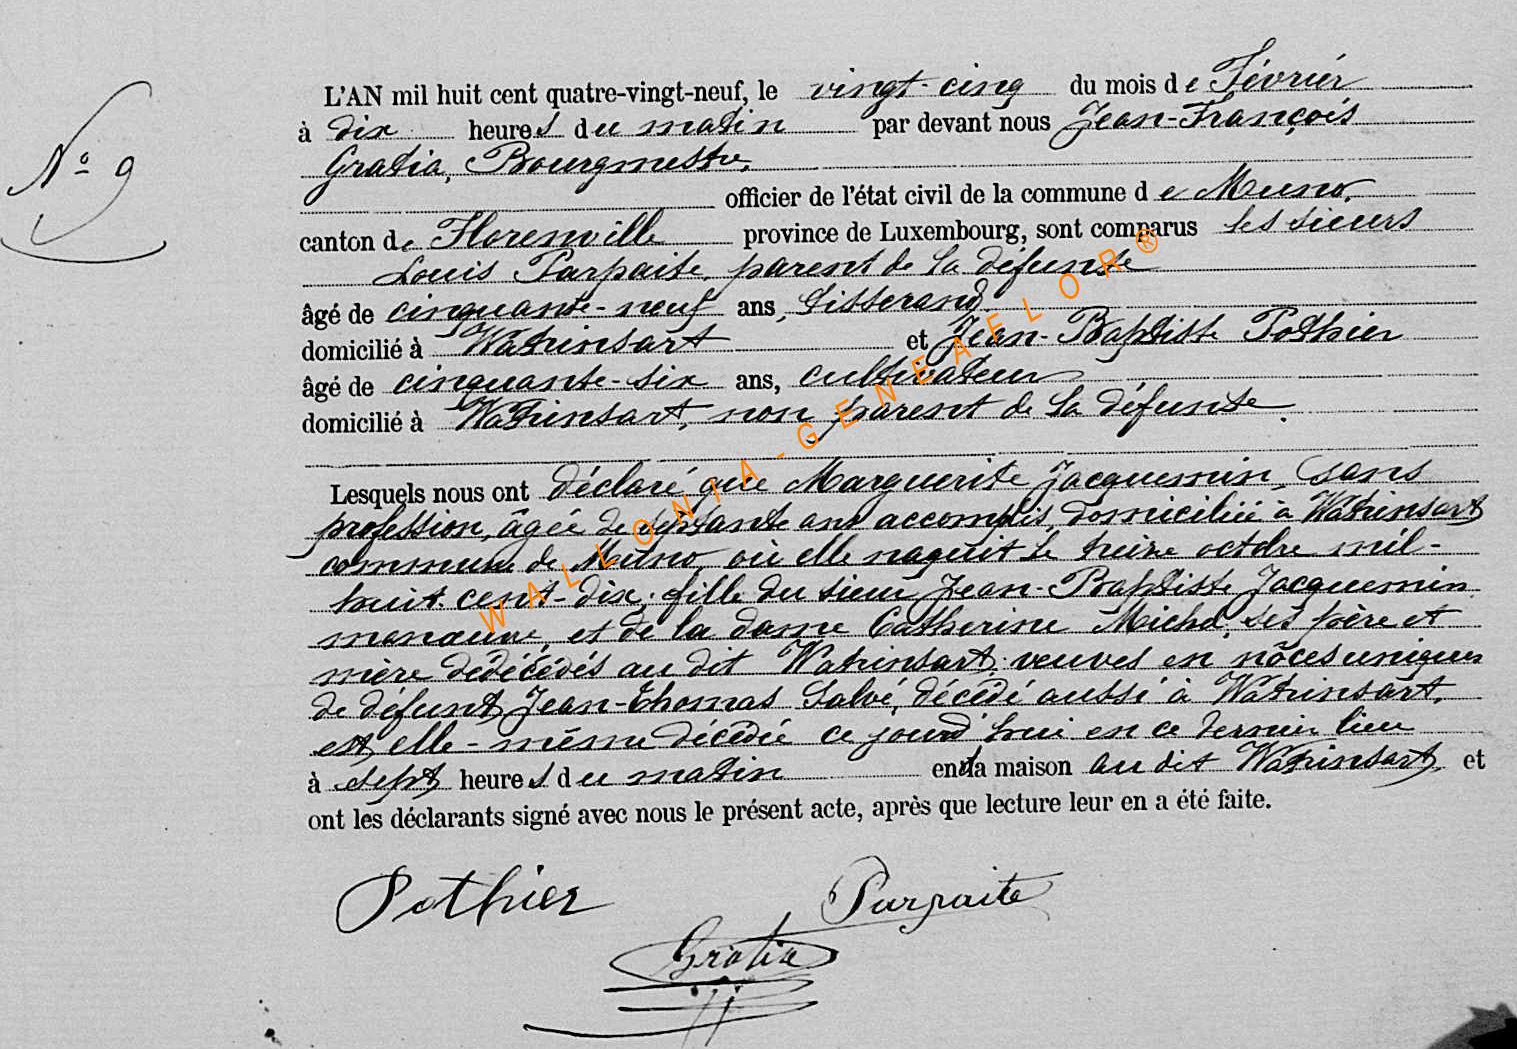 N° 9
L'AN mil huit cent quatre-vingt-neuf, le vingt-cinq du mois de Février
à dix heures du matin par devant nous Jean-François
Gratia, Bourgmestre,
officier de l'état civil de la commune de Muno,
canton de Florenville province de Luxembourg, sont comparus les sieurs
Louis Parfaite, parent de la défunte
âgé de cinquante-neuf ans, tisserand
domicilié à Watrinsart et Jean-Baptiste Pothier
âgé de cinquante-six ans, cultivateur
domicilié à Watrinsart, non parent de la défunte.
Lesquels nous ont déclaré que Marguerite Jacquemin, sans
profession, âgée de ans accomplis, domiciliée à Watrinsart
commune de Muno, où elle naquit le treize octobre mil-
huit-cent-dix, fille du sieur Jean-Baptiste Jacquemin
manœuvre, et de la dame Catherine Michel, ses père et
mère dédécédés au dit Watrinsart; veuves en nôces uniques
de défunt Jean-Thomas Salvé, décédé aussi à Watrinsart,
est elle-même décédée ce jourd'hui en ce dernier lieu
à sept heures du matin en la maison au dit Watrinsart, et
ont les déclarants signé avec nous le présent acte, après que lecture leur en a été faite.
Pothier Parfaite
Gratia
WALLONIA-GENEAFLOR®